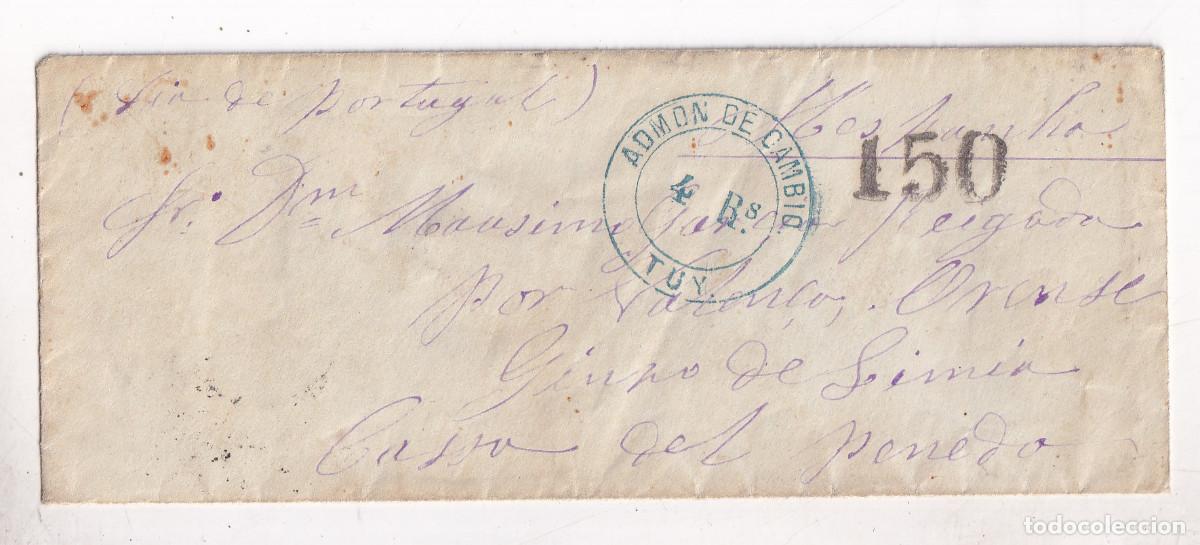 (Via de Portugal)
Hespanha
ADMON DE CAMBIO.
4 Rs.
TUY
150
Sr. Dm Maasimo Garcia
Por Valença, Orense
Ginzo de Limia
Cassa del penedo
todocoleccion